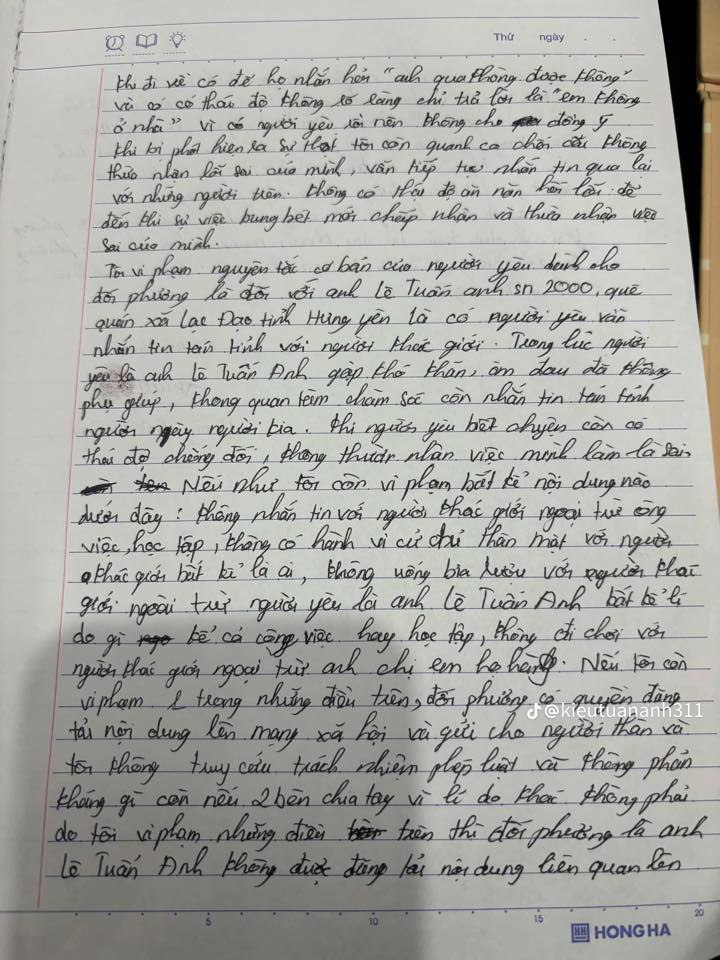 Thứ ngày . .
khi đi về có để họ nhắn hỏi "anh qua không được không"
và có có thái độ không rõ ràng chỉ trả lời là "em không
ở nhà" vì có người yêu rồi nên không cho đồng ý
khi bị phát hiện ra sự thật tôi còn quanh co chối cãi không
thừa nhận lỗi sai của mình, vẫn tiếp tục nhắn tin qua lại
với những người trên. Không có thái độ ăn năn hối lỗi để
đến khi sự việc bung bét mới chấp nhận và thừa nhận việc
sai của mình.
Tôi vi phạm nguyên tắc cơ bản của người yêu dành cho
đối phương là đối với anh Lê Tuấn anh sn 2000, quê
quán xã Lạc Đạo tỉnh Hưng yên là có người yêu vẫn
nhắn tin tán tỉnh với người khác giới. Trong lúc người
yêu là anh Lê Tuấn Anh gặp khó khăn, ốm đau đã không
phụ giúp, không quan tâm chăm sóc còn nhắn tin tán tỉnh
người này người kia. Khi người yêu biết chuyện còn có
thái độ chống đối, không thừa nhận việc mình làm là sai
Nếu như tôi còn vi phạm bất kể nội dung nào
dưới đây: không nhắn tin với người khác giới ngoại trừ công
việc, học tập, không có hành vi cử chỉ thân mật với người
khác giới bất kì là ai, không uống bia rượu với người khác
giới ngoài trừ người yêu là anh Lê Tuấn Anh bất kể lí
do gì kể cả công việc hay học tập, không đi chơi với
người khác giới ngoại trừ anh chị em họ hàng. Nếu tôi còn
vi phạm 1 trong những điều trên, đối phương có quyền đăng
tải nội dung lên mạng xã hội và gửi cho người thân và
tôi không truy cứu trách nhiệm pháp luật và không phản
kháng gì còn nếu 2 bên chia tay vì lí do khác không phải
do tôi vi phạm những điều trên thì đối phương là anh
Lê Tuấn Anh không được đăng tải nội dung liên quan lên
@kieutuananh311
5 10 15 20
HH HONG HA